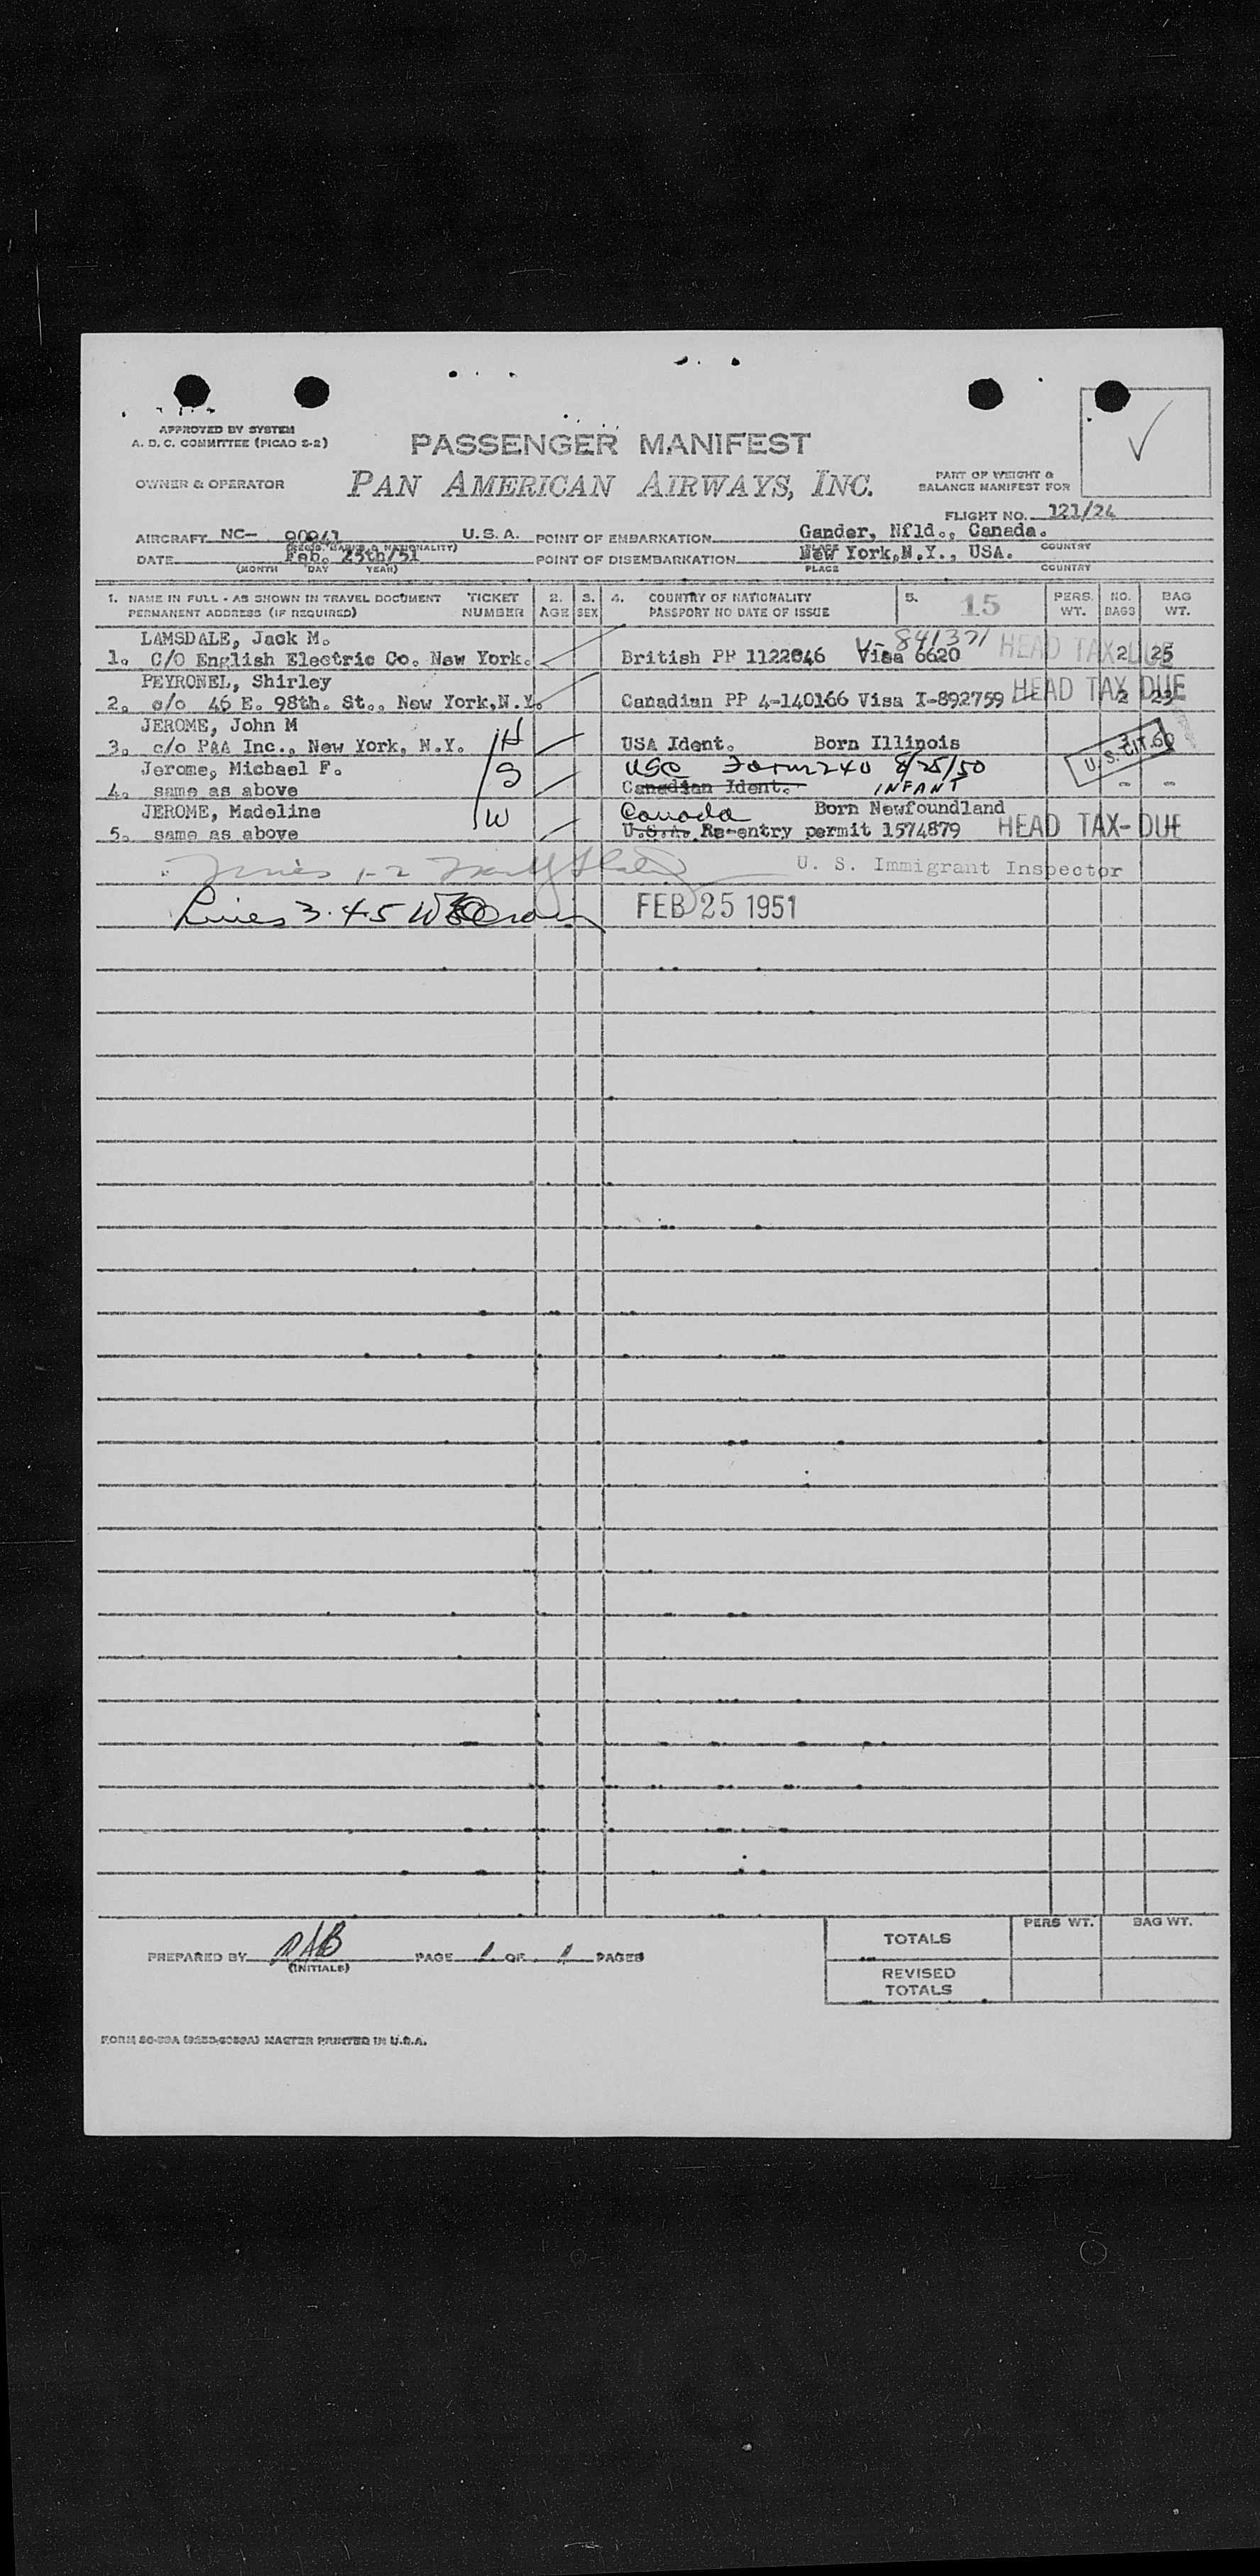 APPROVED BY SYSTEM
A. D. C. COMMITTEE (PICAO S-2)
PASSENGER MANIFEST
OWNER & OPERATOR
PAN AMERICAN AIRWAYS, INC.
PART OF WEIGHT &
BALANCE MANIFEST FOR
FLIGHT NO. 121/24
AIRCRAFT NC- 90941 U.S.A. POINT OF EMBARKATION Gander, Nfld., Canada.
DATE Feb. 25th/51 POINT OF DISEMBARKATION New York,N.Y., USA. COUNTRY
(MONTH DAY YEAR) PLACE COUNTRY
1. NAME IN FULL - AS SHOWN IN TRAVEL DOCUMENT TICKET 2. 3. 4. COUNTRY OF NATIONALITY 5. 15 PERS. NO. BAG
PERMANENT ADDRESS (IF REQUIRED) NUMBER AGE SEX PASSPORT NO DATE OF ISSUE WT. BAGS WT.
LAMSDALE, Jack M. V- 841371
1. C/O English Electric Co. New York. British PP 1122846 Visa 6620 HEAD TAX DUE 2 25
PEYRONEL, Shirley
2. c/o 46 E. 98th. St., New York,N.Y. Canadian PP 4-140166 Visa I-892759 HEAD TAX DUE 2 23
JEROME, John M
3. c/o PAA Inc., New York, N.Y. H USA Ident. Born Illinois U. S. CIT.
Jerome, Michael F. S USC Form 240 8/25/50
4. same as above Canadian Ident. INFANT - -
JEROME, Madeline W Canada Born Newfoundland
5. same as above U.S.A. Re-entry permit 1574879 HEAD TAX- DUE
Lines 1-2 U. S. Immigrant Inspector
Lines 3.4.5 FEB 25 1951
PREPARED BY (INITIALS) PAGE 1 OF 1 PAGES
PERS WT. BAG WT.
TOTALS
REVISED
TOTALS
MASTER PRINTED IN U.S.A.